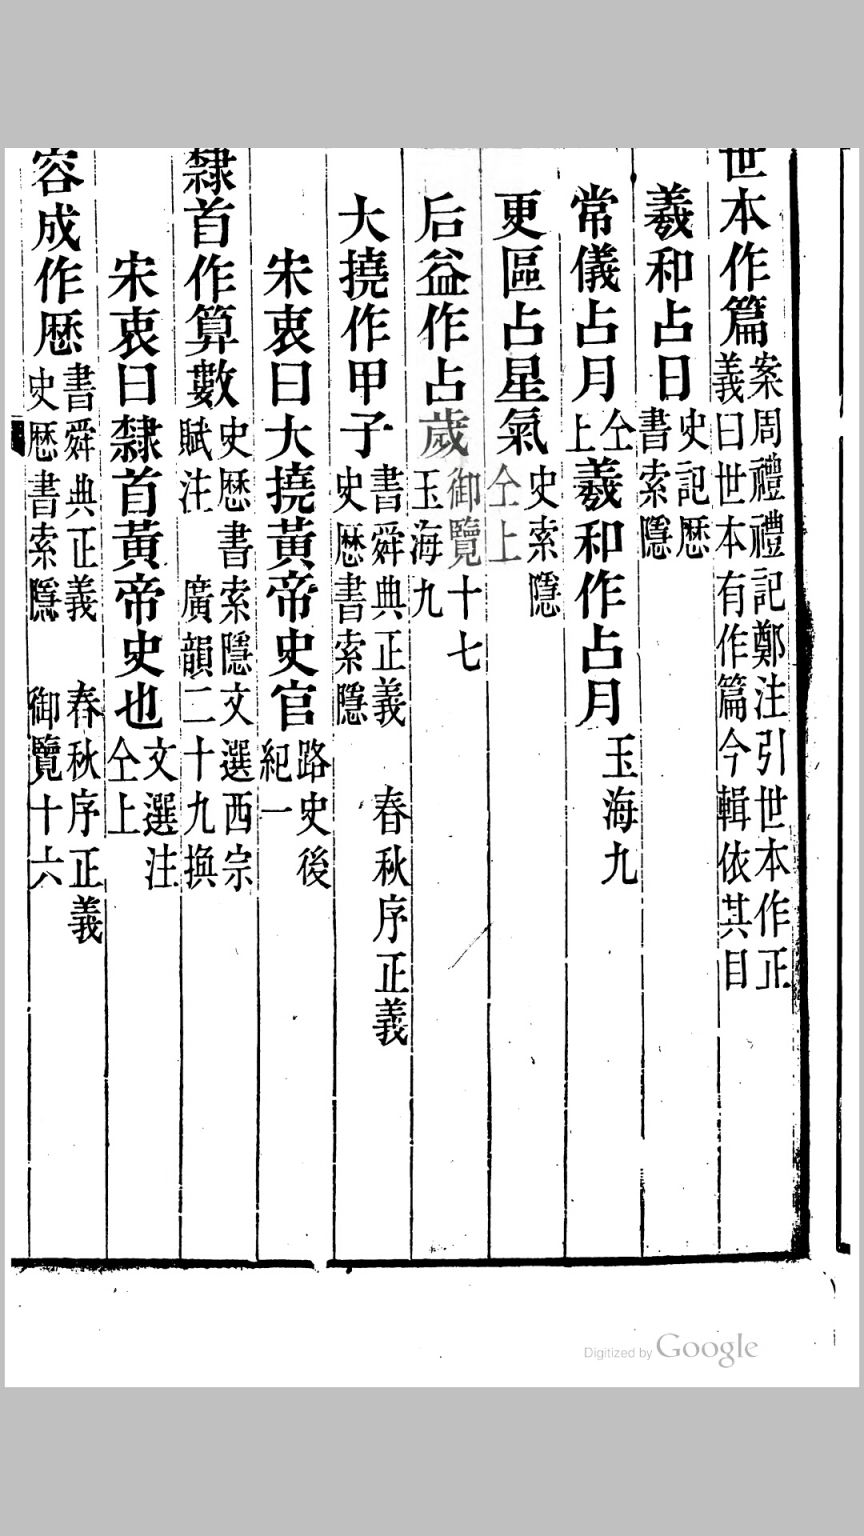 世本作篇案周禮禮記鄭注引世本作正義曰世本有作篇今輯依其目
羲和占日史記厯書索隱
常儀占月仝上羲和作占月玉海九
更區占星氣史索隱仝上
后益作占歲御覽十七玉海九
大撓作甲子書舜典正義 春秋序正義史厯書索隱
宋衷曰大撓黃帝史官路史後紀一
隸首作算數史厯書索隱文選西宗賦注 廣韻二十九換
宋衷曰隸首黃帝史也文選注仝上
容成作厯書舜典正義 春秋序正義史厯書索隱 御覽十六
Digitized by Google